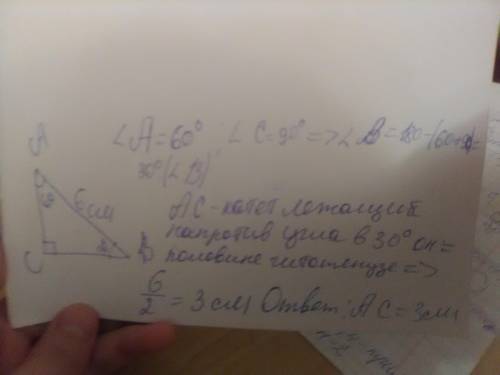 ∠A=60° ∠C=90° => ∠B=180-(60+90)=
30° (∠B)
A
6 см
C
B
AC-катет лежащий
напротив угла в 30° он=
половине гипотенузе =>
6/2 = 3 см Ответ: AC=3см